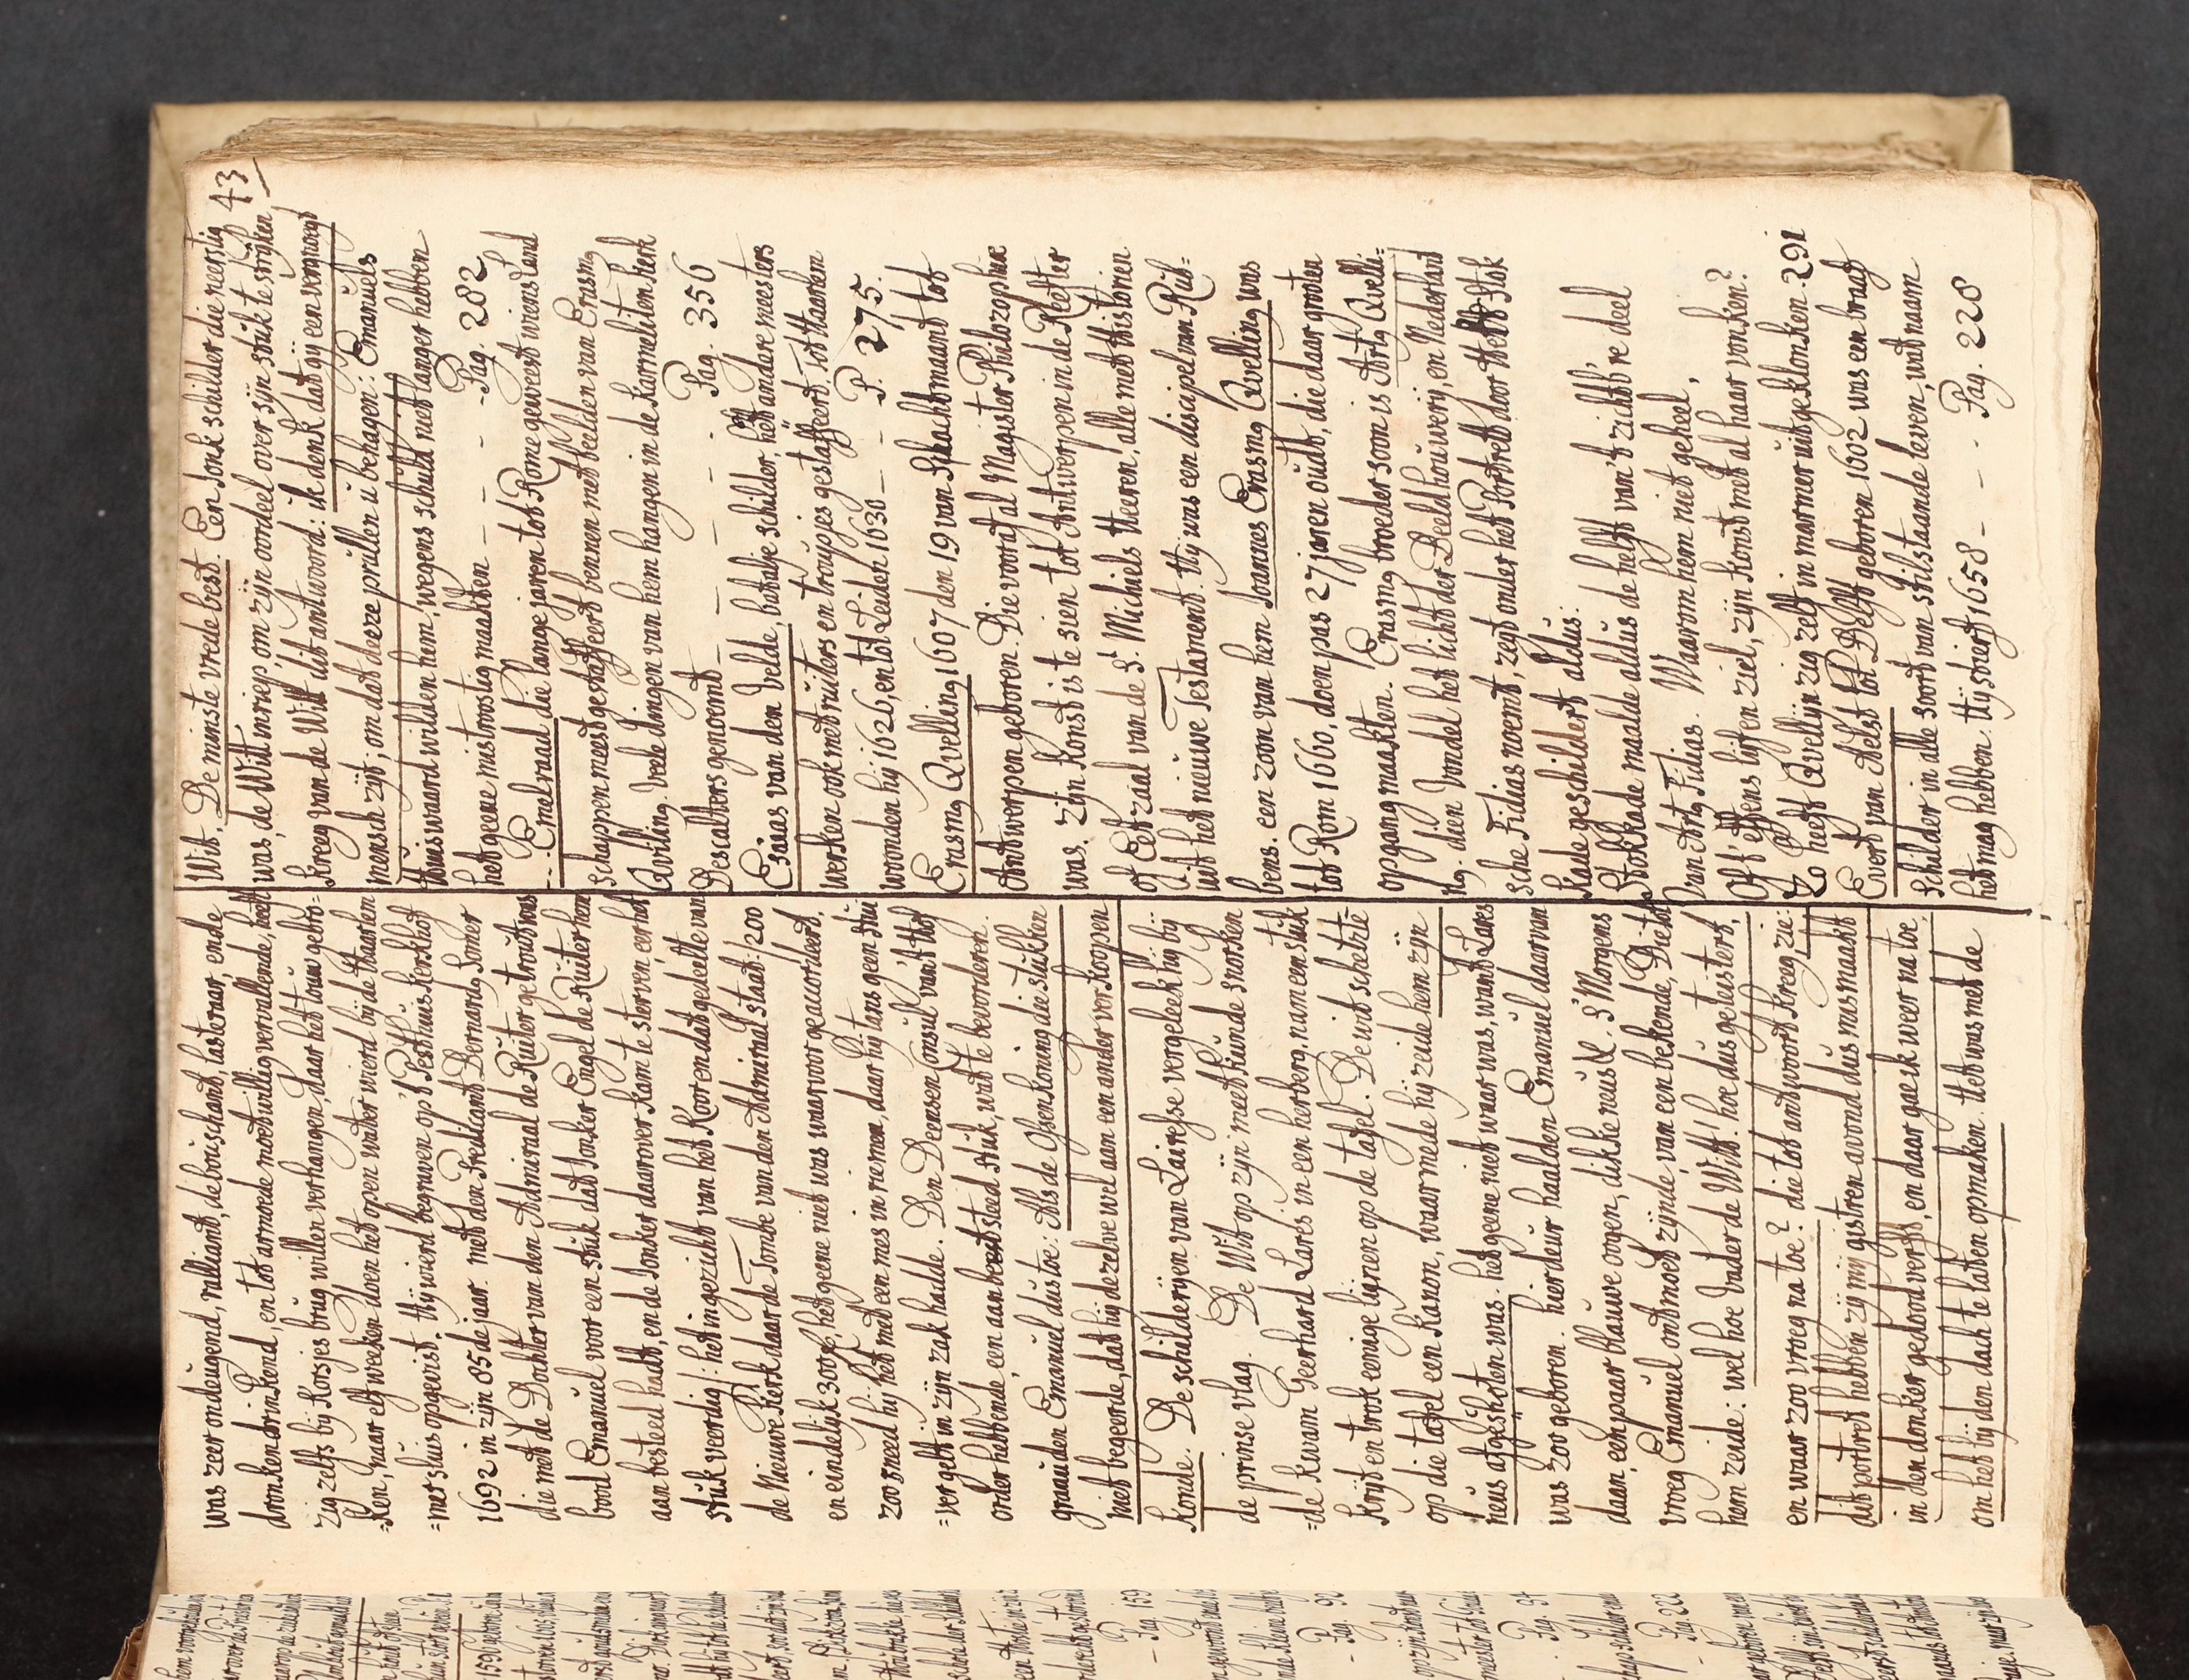 43
was zeer ondeugend, ralliant, deboischant, lasteraar, ende
dronkendrinkend, en tot armoede moetwillig vervallende, heeft
zig zelfs bij Korsjes brug willen verhangen, daar het touw gebro=
=ken, naar elf weeken doen het open water wierd bij de Haarlem
=mer sluis opgevist. Hij wierd begraven op 't Pesthuis kerkhof
1692 in zijn 85de jaar. met den Predicant Bernard Somer
die met de Dochter van den Admiraal de Ruiter getrout was
bood Emanuel voor een stuk dat Jonker Engel de Ruiter hem
aan besteed hadt, en de Jonker daar over kam te sterven, eer het
stuk veerdig: het in gezicht van het Koor en dat gedeelte van
de Nieuwe Kerk daar de Tombe van den Admiraal staat: 200
en eindelijk 300 f, het geene niet was waar voor geaccordeert,
zoo sneed hij het met een mes in riemen, daar hij tans geen stui
=ver gelt in zijn zak hadde. Den Deensen Consul van 't Hof
order hebbende, een aan besteed stuk, wat te bevorderen.
graau den Emanuel dus toe: Als de Osjen koning die stukken
niet begeerde, dat hij dezelve wel aan een ander verkoopen
konde. De schilderijen van Lairesse vergeleek hij bij
de prinse vlag. De Wit op zyn meetkunde snorken
=de kwam Geerhard Lares in een herberg, nam een stuk
krijt en trok eenige lijnen op de tafel. De wit schetste
op die tafel een Kanon, waar mede hij zeide hem zijn
neus afgeshoten was. het geene niet waar was, want Lares
was zoo geboren. hier deur haalden Emanuel daar van
daan, een paar blauwe oogen, dikke neus &. 's Morgens
vroeg Emanuel ontmoet zijnde, van een bekende, Die tot
hem zeide: wel hoe Vader de Witt! hoe dus geteistert,
en waar zoo vroeg na toe? die tot antwoort kreeg: zie:
dit portret hebben zij mij gistren avond dus mismaakt
in den donker gedood verfft, en daar gae ik weer na toe
om het bij den dach te laten opmaken. Het was met de
Wit. De minste vrede best. Een Jonk schilder die neerstig
was, de Witt in riep, om zijn oordeel over zijn stuk te strijken,
kreeg van de Witt uit antwoord: ik denk dat gij een vernoegt
mensch zijt; om dat deeze prullen u behagen: Emanuels
huiswaard wilden hem, wegens schuld niet langer hebben
het geene mistroostig maakten - - - Pag. 282
-- Emelraad die lange jaren tot Rome geweest wiens land
schappen meest gestaffeert bennen met beelden van Erasmg
Qvilling. Veele dingen van hem hangen in de karmeliten kerk
Descalters genoemt - - - - Pag. 356
Esaias van den Velde, batalje schilder, heft andare meesters
werken ook met ruiters en troupjes gestaffeerd. tot Haarlem
woonden hij 1626, en tot Leiden 1630 - - P. 275.
Erasmg Qvelling 1607 den 19 van Slachtmaant tot
Antwerpen geboren. Die vooraf al Magister Philozophiae
was. zijn konst is te sien tot Antwerpen in de Reefter
of Eetzaal van de St. Michiels Heeren, alle met historien
uit het nieuwe Testament. Hij was een discipel van Rub=
bens. een zoon van hem Joannes Erasmg Qvelling was
tot Rom 1660, doen pas 27 jaren oudt, die daar grooten
opgang maakten. Erasmg broeder soon is Artg Qvelli=
ng. dien Vondel het licht der Beeldhouwerij, en Nederland
sche Fidias noemt, zegt onder het Portrett door Helt Stok
kade geschildert aldus:
Stokkade maalde aldus de helft van't zichtb're deel
Van Artg Fidias. Waarom hem niet geheel,
Off effens lijf en ziel, zijn konst met al haar vonken?
Zo heeft Qvellijn zig zelf in marmer uitgeklonken - 291
Evert van Aelst tot Delft geboren 1602 was een braaf
schilder in alle soort van stilstaande leven, wat naam
het mag hebben. Hij stierf 1658 - - - Pag. 228
Pag. 159
Pag. 90
Pag. 94
Pag. 222